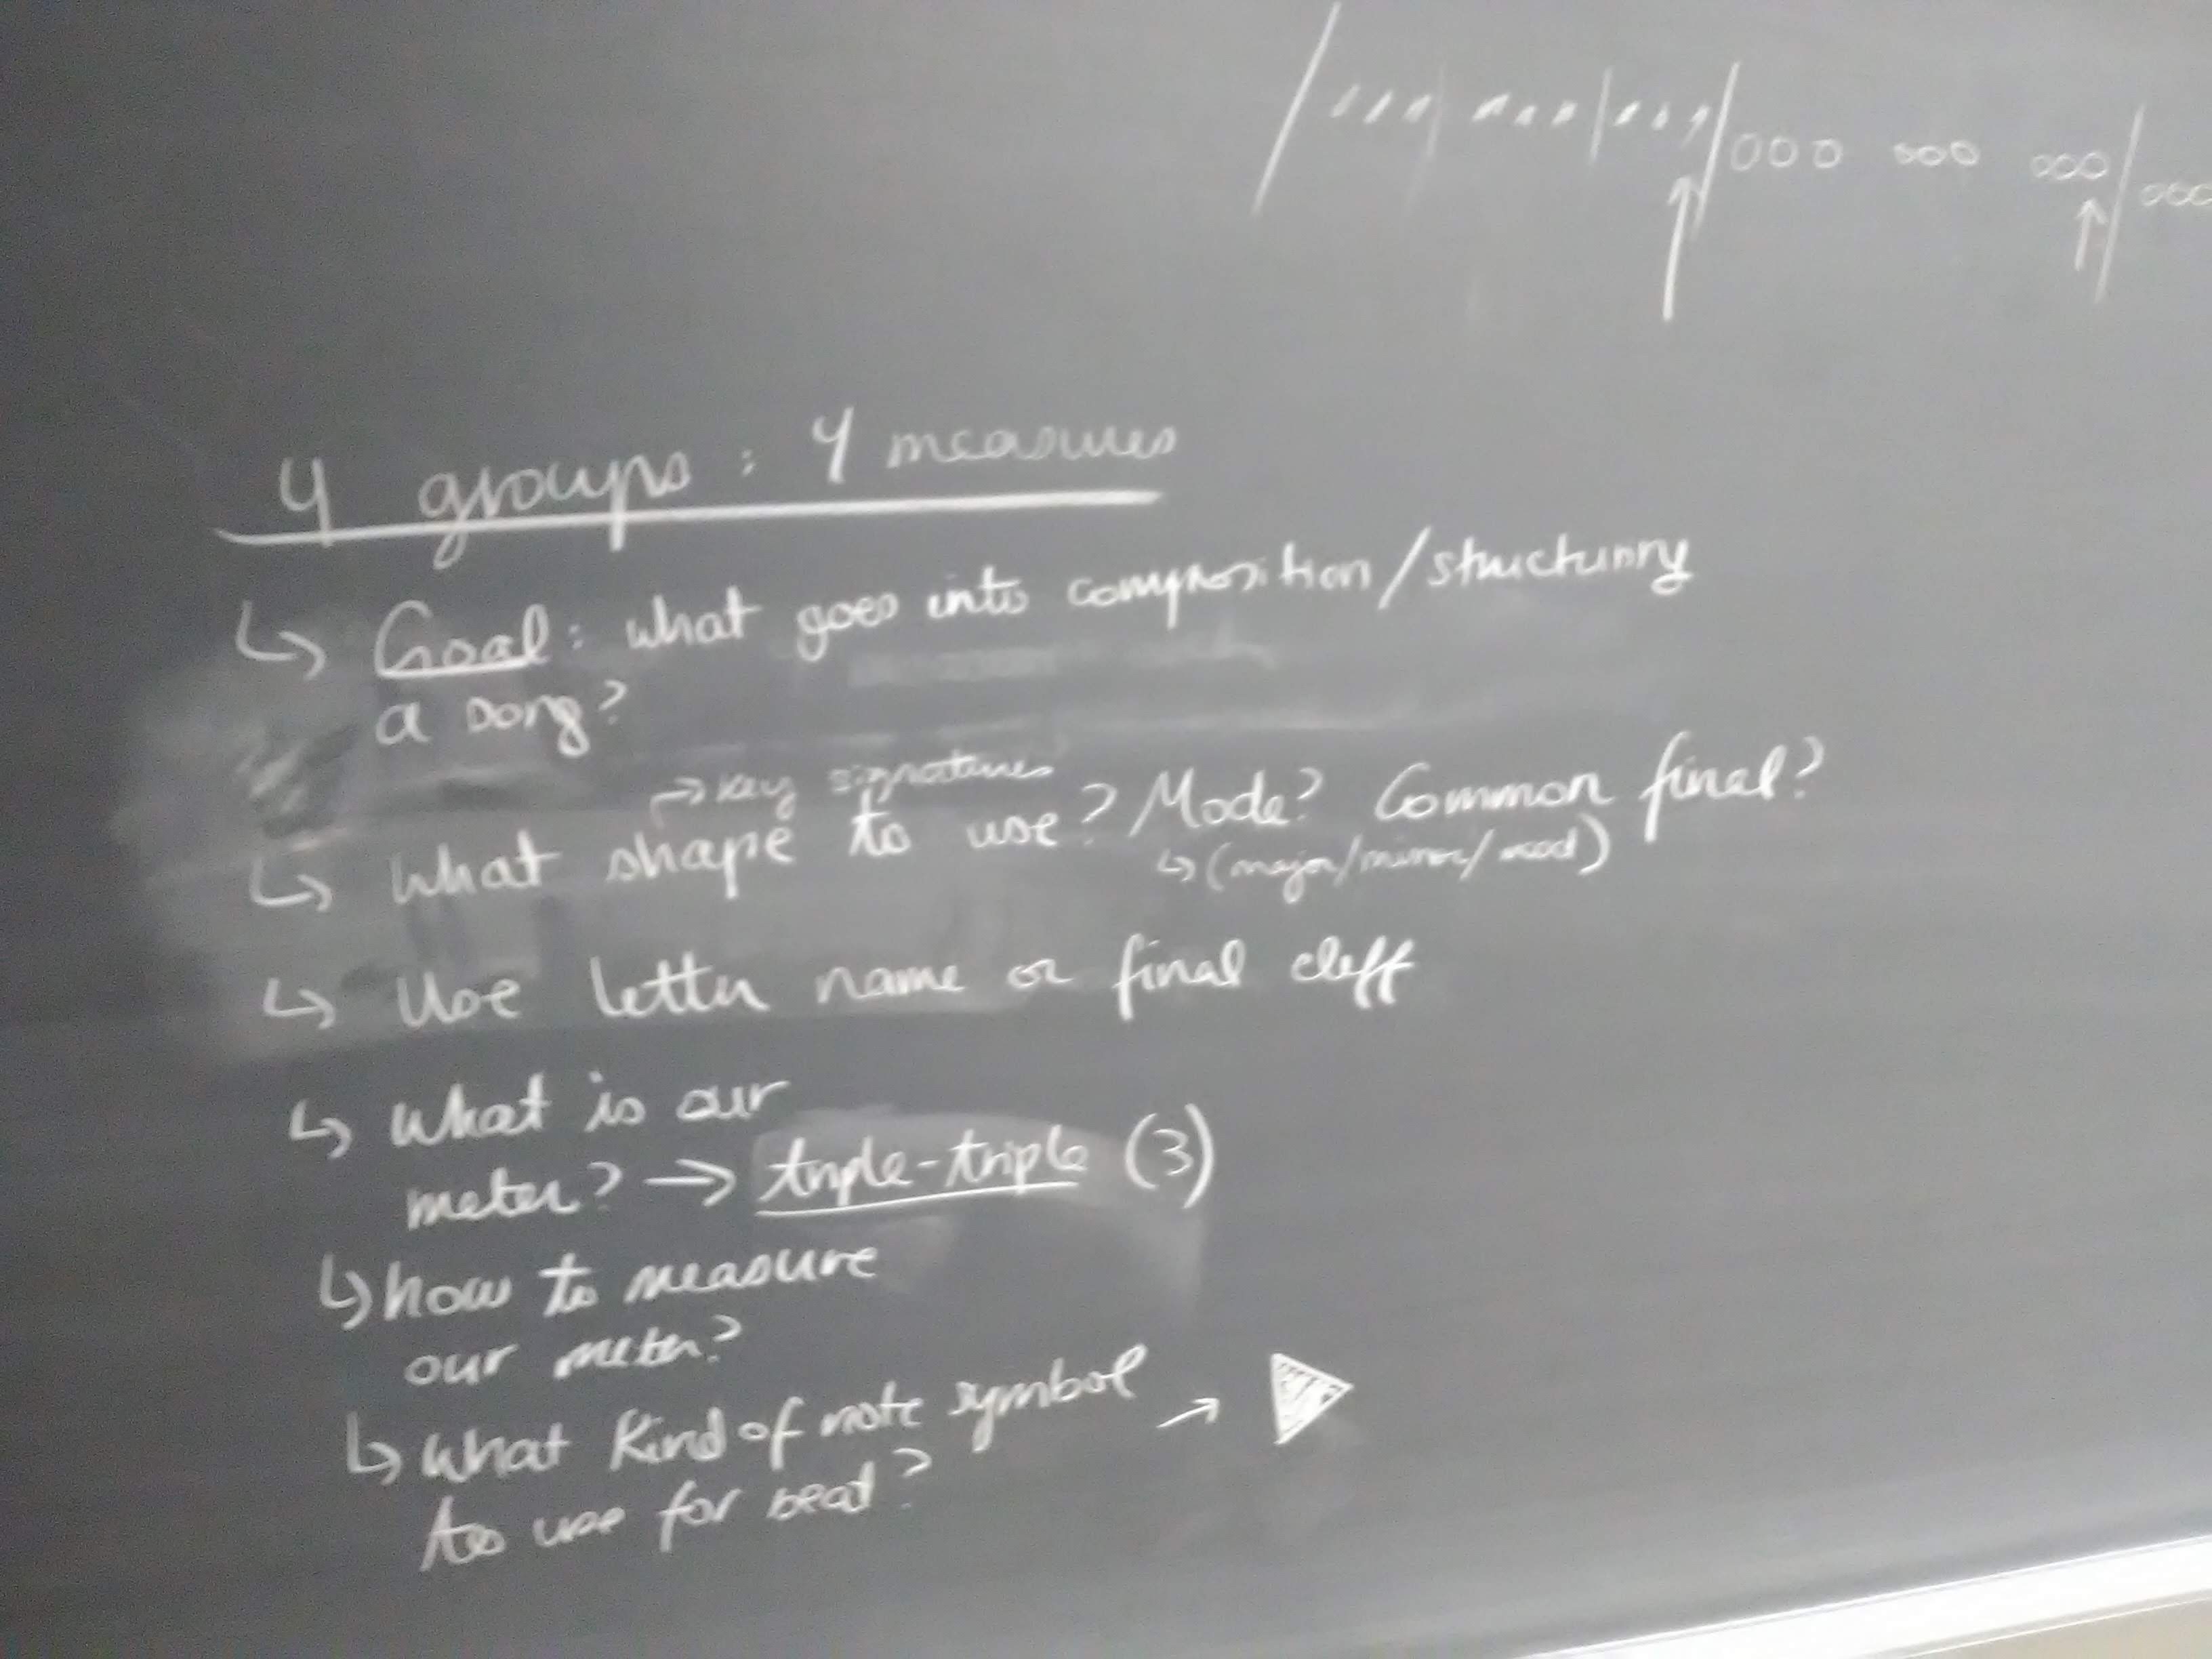 4 groups : 4 measures
↳ Goal: what goes into composition/structuring
a song?
→ key signatures
↳ What shape to use? Mode? Common final?
↳ (major/minor/mod)
↳ Use letter name or final cleff
↳ What is our
meter? → triple-triple (3)
↳ how to measure
our meter?
↳ What kind of note symbol →
to use for beat?